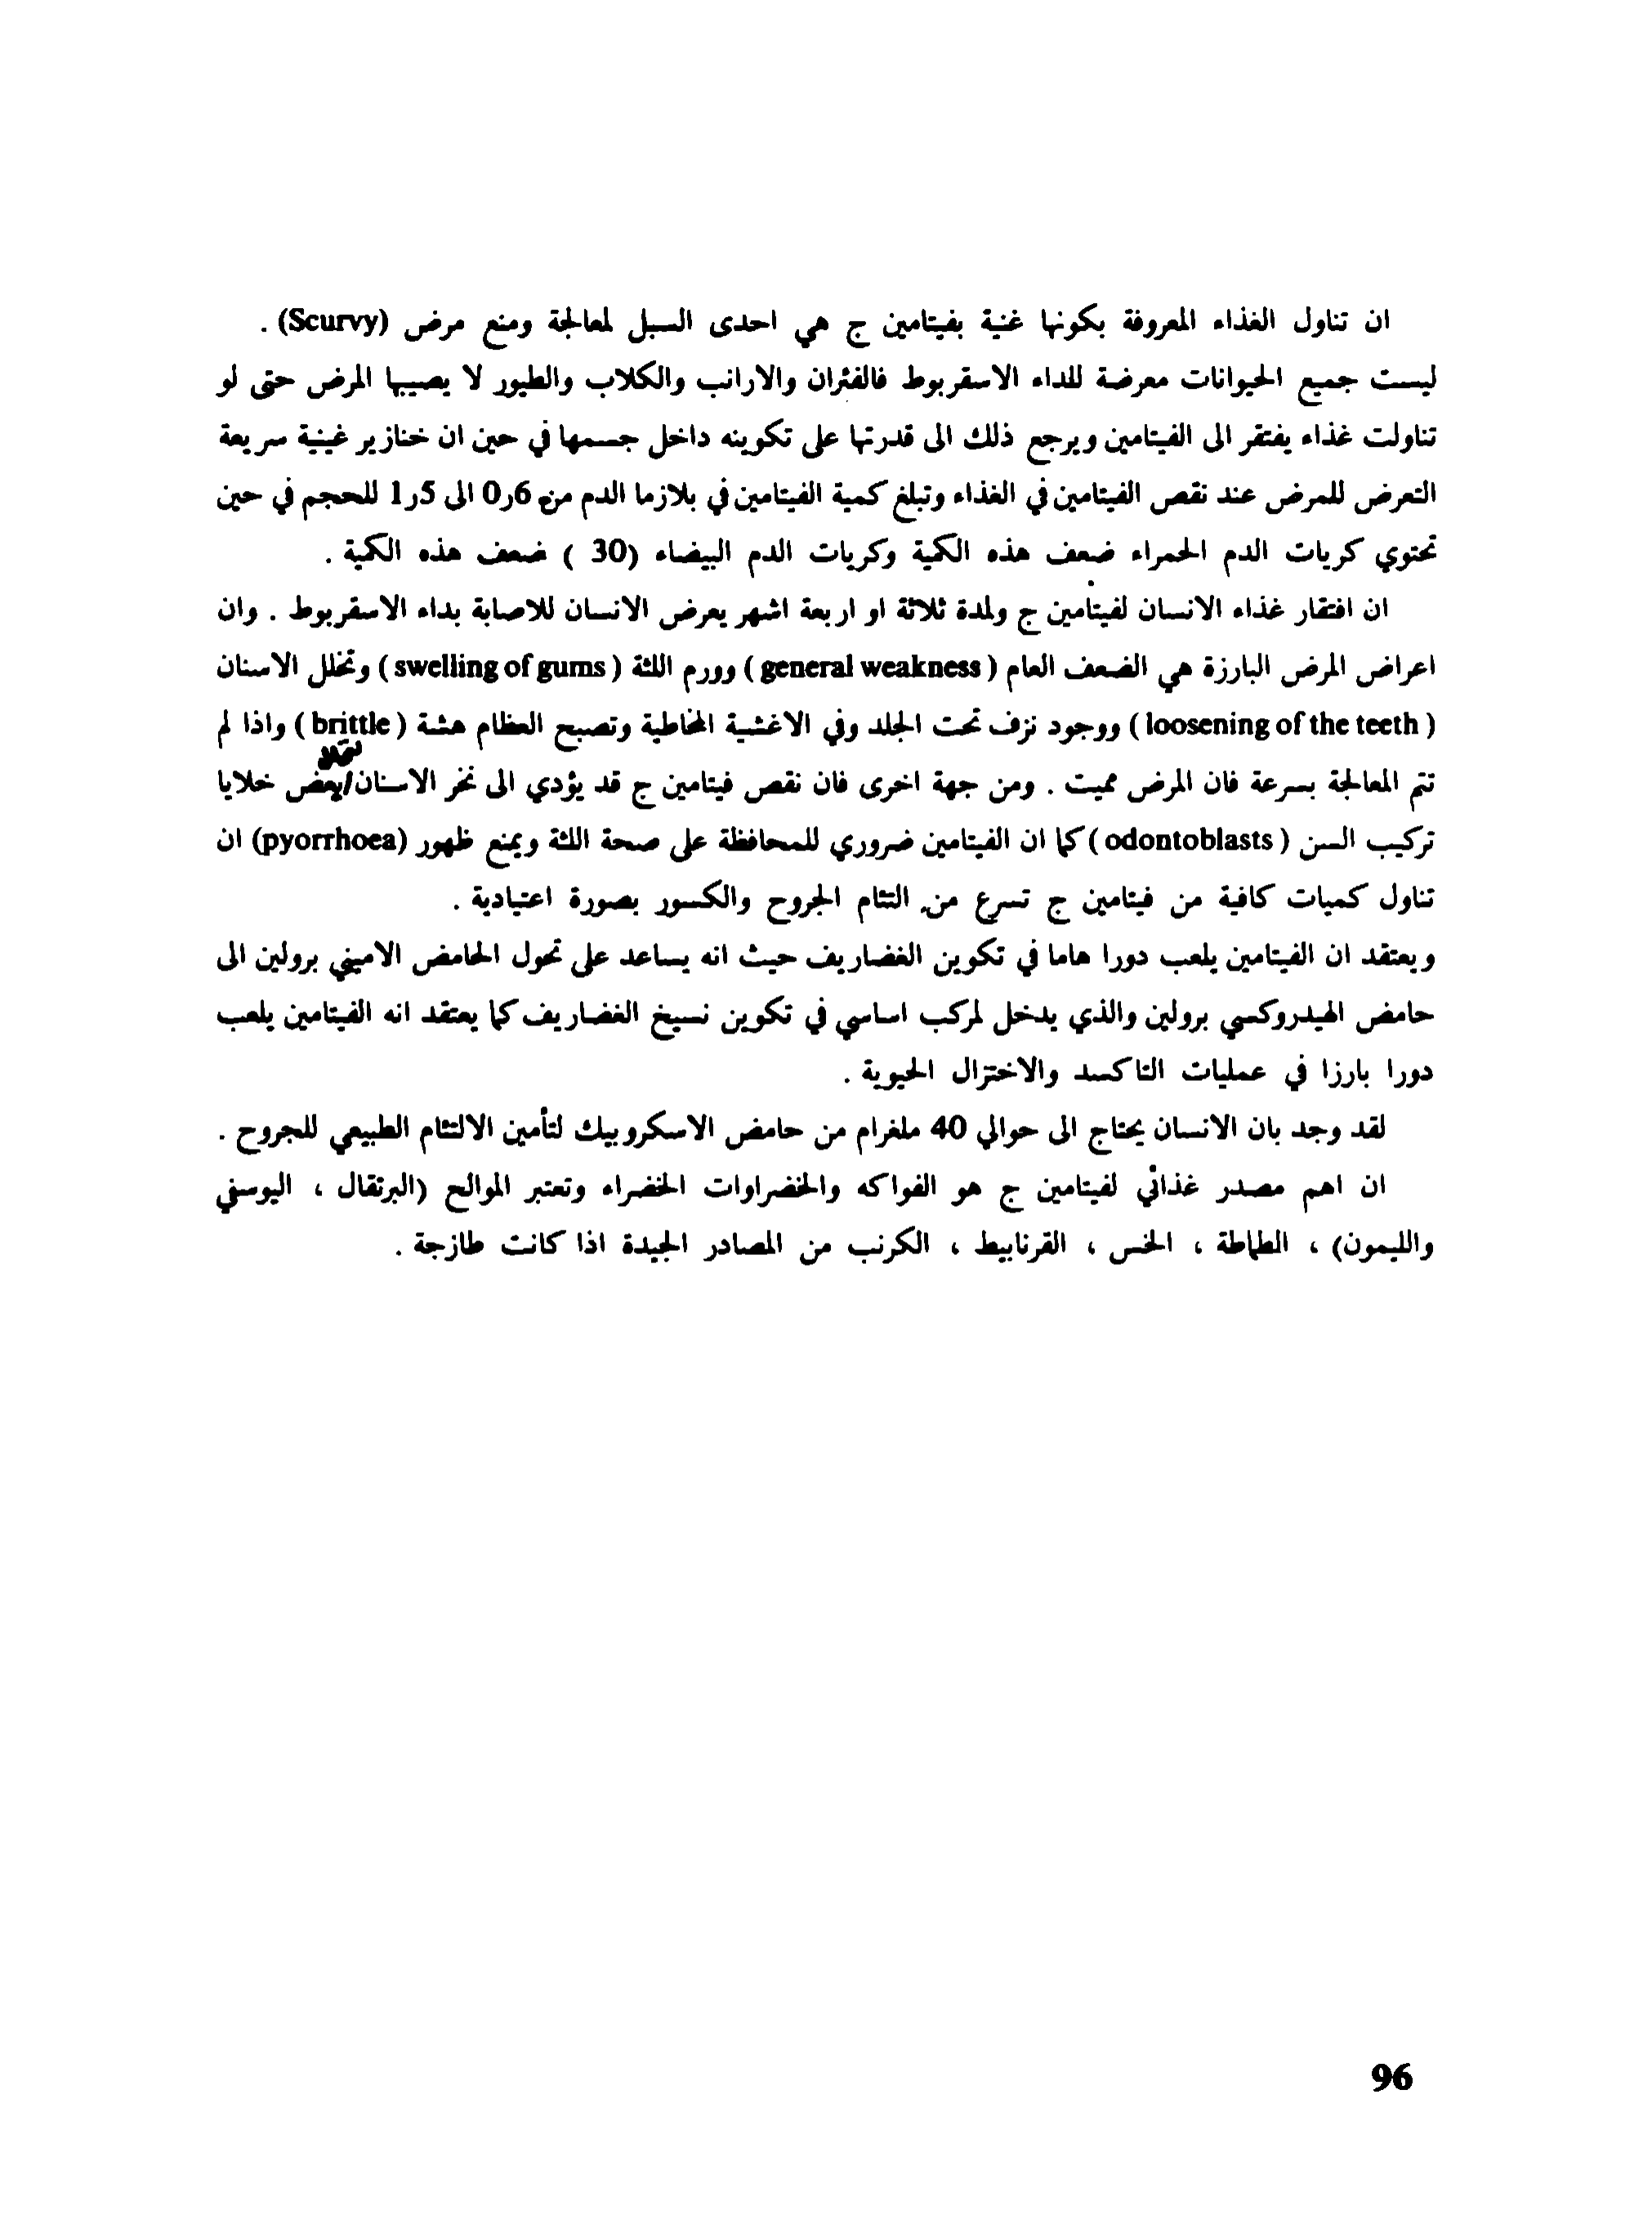 ان تناول الغذاء المعروفة بكونها غنية بفيتامين ج هي احدى السبل لمعالجة ومنع مرض (Scurvy) .
ليست جميع الحيوانات معرضة للداء الاسقربوط فالفئران والارانب والكلاب والطيور لا يصيبها المرض حتى لو
تناولت غذاء يفتقر الى الفيتامين ويرجع ذلك الى قدرتها على تكوينه داخل جسمها في حين ان خنازير غينية سريعة
التعرض للمرض عند نقص الفيتامين في الغذاء وتبلغ كمية الفيتامين في بلازما الدم من 6ر0 الى 5ر1 للحجم في حين
تحتوي كريات الدم الحمراء ضعف هذه الكمية وكريات الدم البيضاء (30 ) ضعف هذه الكمية .
ان افتقار غذاء الانسان لفيتامين ج ولمدة ثلاثة او اربعة اشهر يعرض الانسان للاصابة بداء الاسقربوط . وان
اعراض المرض البارزة هي الضعف العام ( general weakness ) وورم اللثة ( swelling of gums ) وتخلل الاسنان
( loosening of the teeth ) ووجود نزف تحت الجلد وفي الاغشية المخاطية وتصبح العظام هشة ( brittle ) واذا لم
تتم المعالجة بسرعة فان المرض مميت . ومن جهة اخرى فان نقص فيتامين ج قد يؤدي الى نخر الاسنان/بعض خلايا
تركيب السن ( odontoblasts ) كما ان الفيتامين ضروري للمحافظة على صحة اللثة ويمنع ظهور (pyorrhoea) ان
تناول كميات كافية من فيتامين ج تسرع من التئام الجروح والكسور بصورة اعتيادية .
ويعتقد ان الفيتامين يلعب دورا هاما في تكوين الغضاريف حيث انه يساعد على تحول الحامض الاميني برولين الى
حامض الهيدروكسي برولين والذي يدخل لمركب اساسي في تكوين نسيخ الغضاريف كما يعتقد انه الفيتامين يلعب
دورا بارزا في عمليات التاكسد والاختزال الحيوية .
لقد وجد بان الانسان يحتاج الى حوالي 40 ملغرام من حامض الاسكروبيك لتأمين الالتئام الطبيعي للجروح .
ان اهم مصدر غذائي لفيتامين ج هو الفواكه والخضراوات الخضراء وتعتبر الموالح (البرتقال ، اليوسفي
والليمون) ، الطماطة ، الخس ، القرنابيط ، الكرنب من المصادر الجيدة اذا كانت طازجة .
96